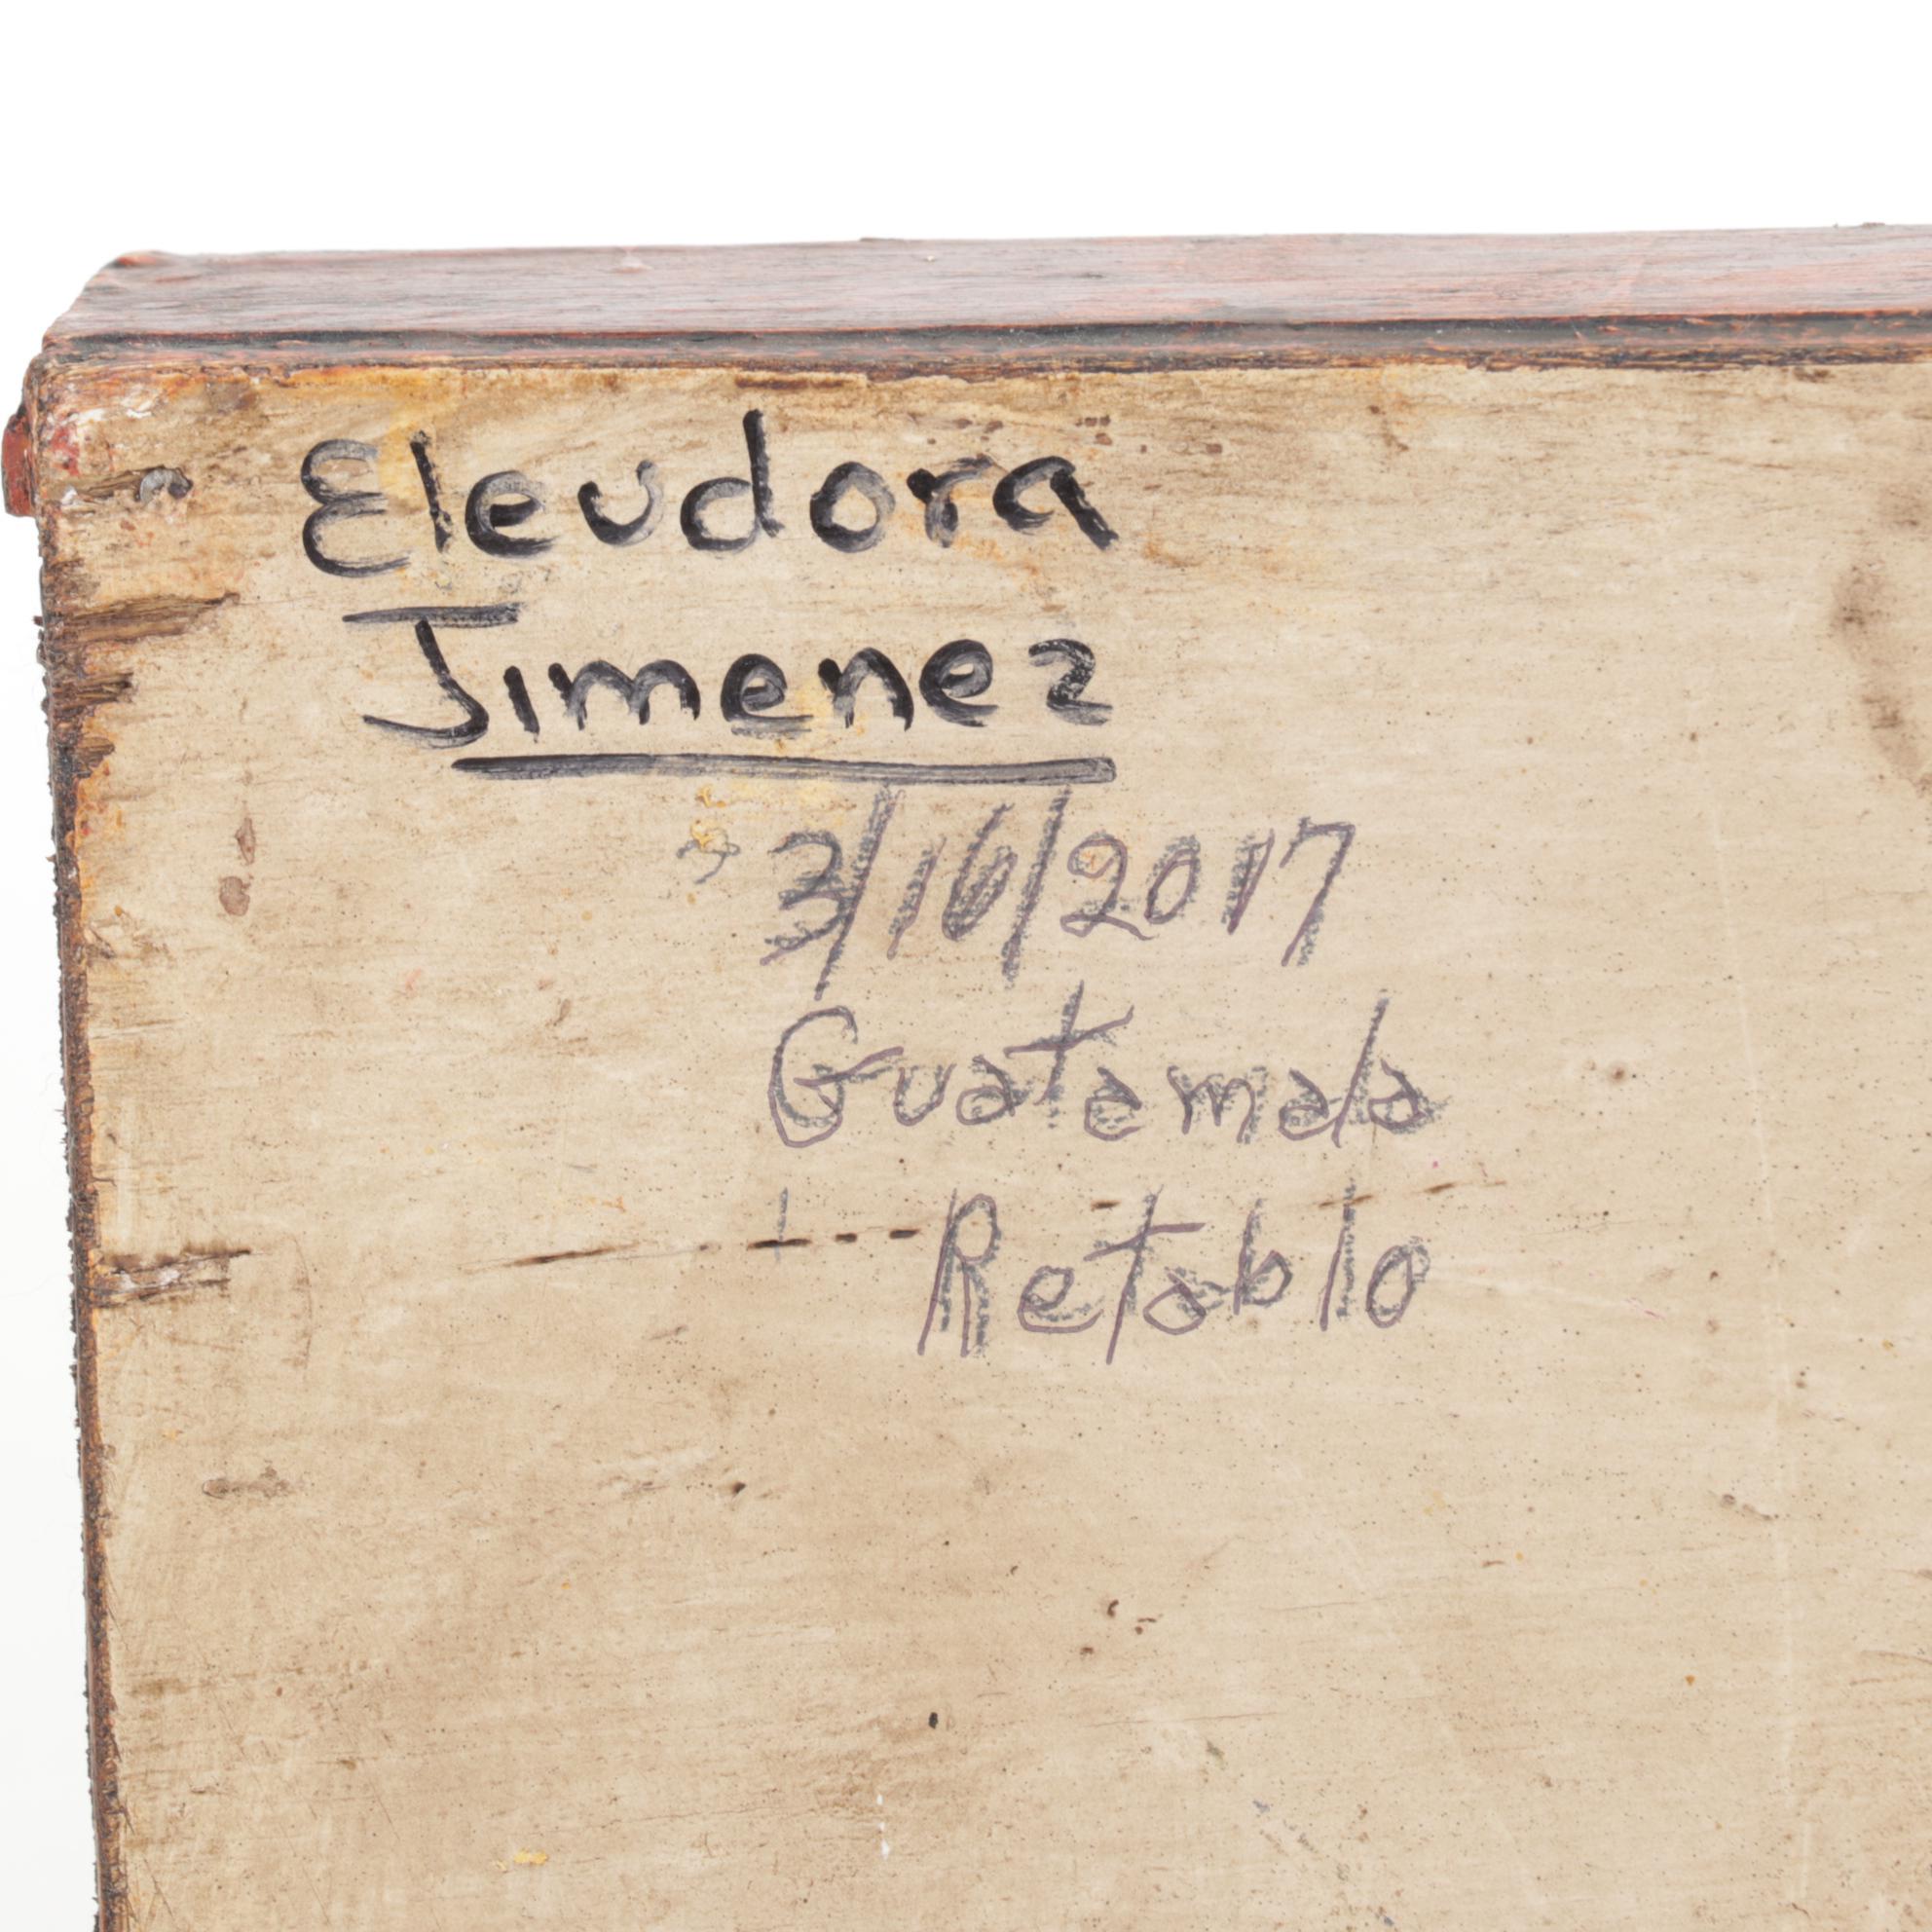 Eleudora
Jimenez
3/16/2017
Guatamala
Retablo